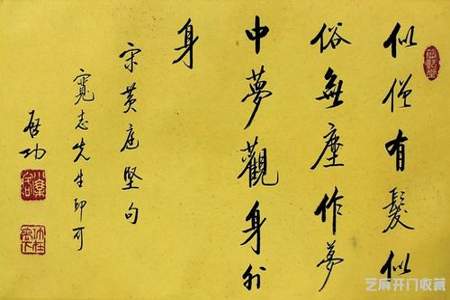 似僧有髮似
俗無塵作夢
中夢觀身外
身
宋黄庭堅句
寬志先生印可
启功
芝麻开门收藏